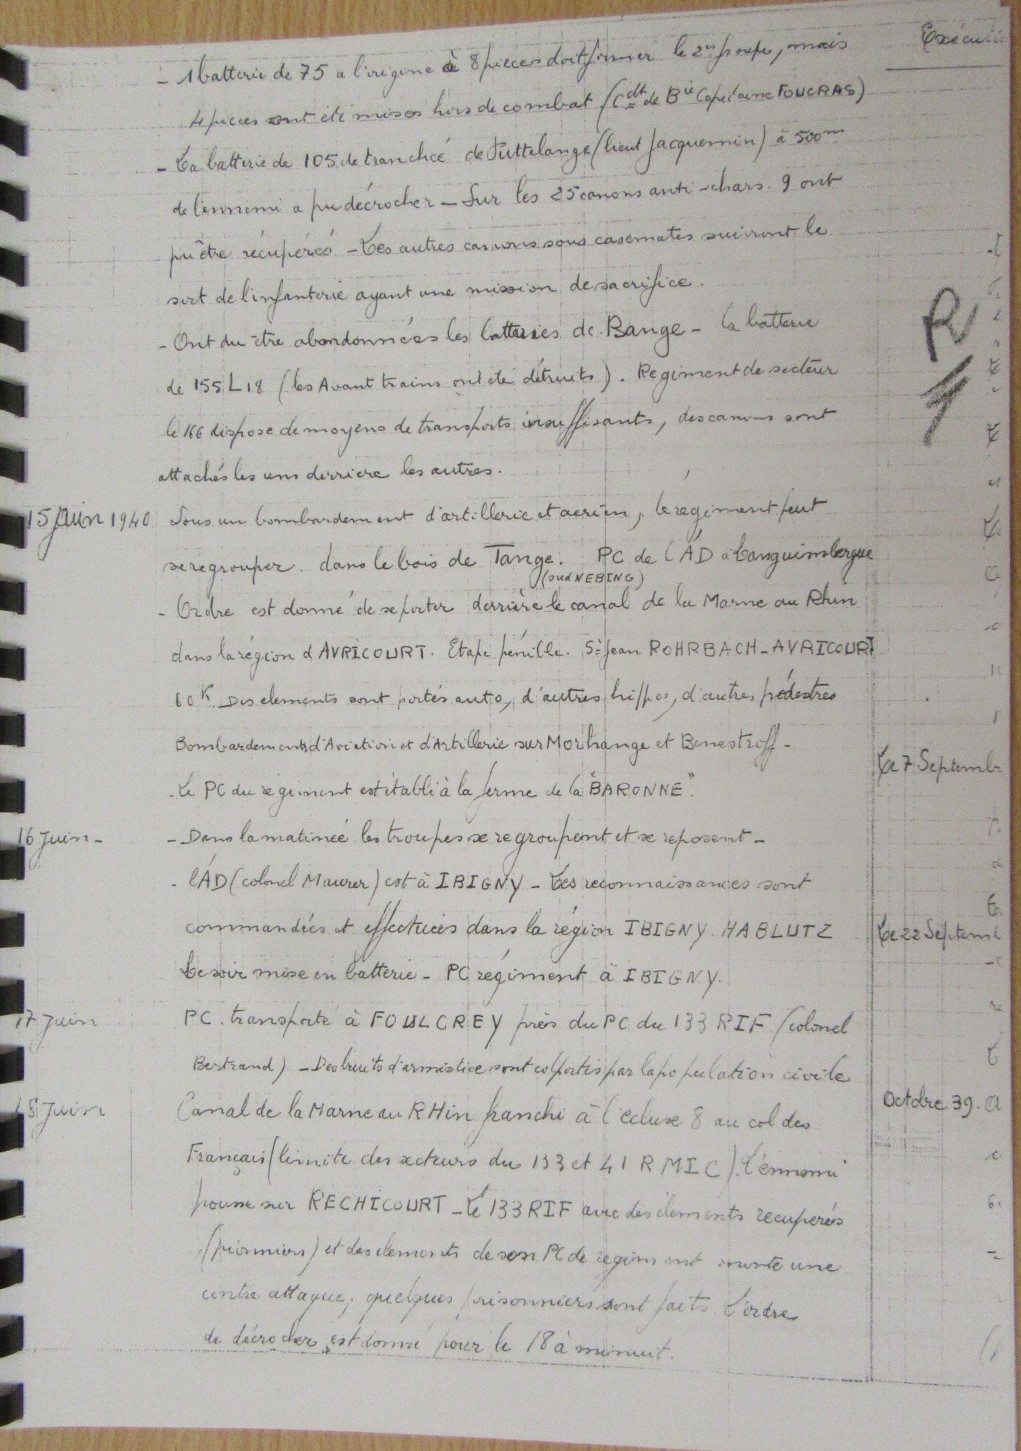 - 1 batterie de 75 a l'origine à 8 pieces doit former le 2e groupe, mais
4 pieces ont été mises hors de combat (Cdt de Bie Capitaine FOUCRAS)
- La batterie de 105 de tranchée de Puttelange (lieut Jacquemin) à 500m
de l'ennemi a pu décrocher - Sur les 25 canons anti-chars. 9 ont
pu être récupérés - Les autres canons sous casemates suivront le
sort de l'infanterie ayant une mission de sacrifice.
- Ont du être abandonnées les batteries de Bange - la batterie
de 155 L 18 (les Avant trains ont été détruits). Regiment de secteur
le 166 dispose de moyens de transports insuffisants, des canons sont
attachés les uns derriere les autres.
15 Juin 1940 Sous un bombardement d'artillerie et aerien, le régiment peut
se regrouper. dans le bois de Tange. PC de l'AD à Languimbergue
(sud NEBING)
- Ordre est donné de se porter derrière le canal de la Marne au Rhin
dans la région d'AVRICOURT. Etape pénible. St Jean ROHRBACH - AVRICOURT
60 K Des elements sont portés auto, d'autres hippos, d'autres pédestres
Bombardements d'Aviation et d'Artillerie sur Morhange et Benestroff -
- Le PC du régiment est établi à la ferme de la "BARONNE".
16 Juin - - Dans la matinée les troupes se regroupent et se reposent -
- l'AD (colonel Maurer) est à IBIGNY - Les reconnaissances sont
commandées et effectuées dans la région IBIGNY. HABLUTZ
Le soir mise en batterie - PC régiment à IBIGNY.
17 Juin PC. transporté à FOULCREY près du PC du 133 RIF (colonel
Bertrand) - Des bruits d'armistice sont colportés par la population civile
18 Juin Canal de la Marne au RHin franchi à l'ecluse 8 au col des
Français (limite des secteurs du 133 et 41 RMIC). L'ennemi
pousse sur RECHICOURT - Le 133 RIF avec des elements recuperés
(pionniers) et des elements de son PC de regiment monte une
contre attaque, quelques prisonniers sont faits. L'ordre
de décrocher est donné pour le 18 à minuit.
Le 7 Septembr
Le 22 Septem
Octobre 39.